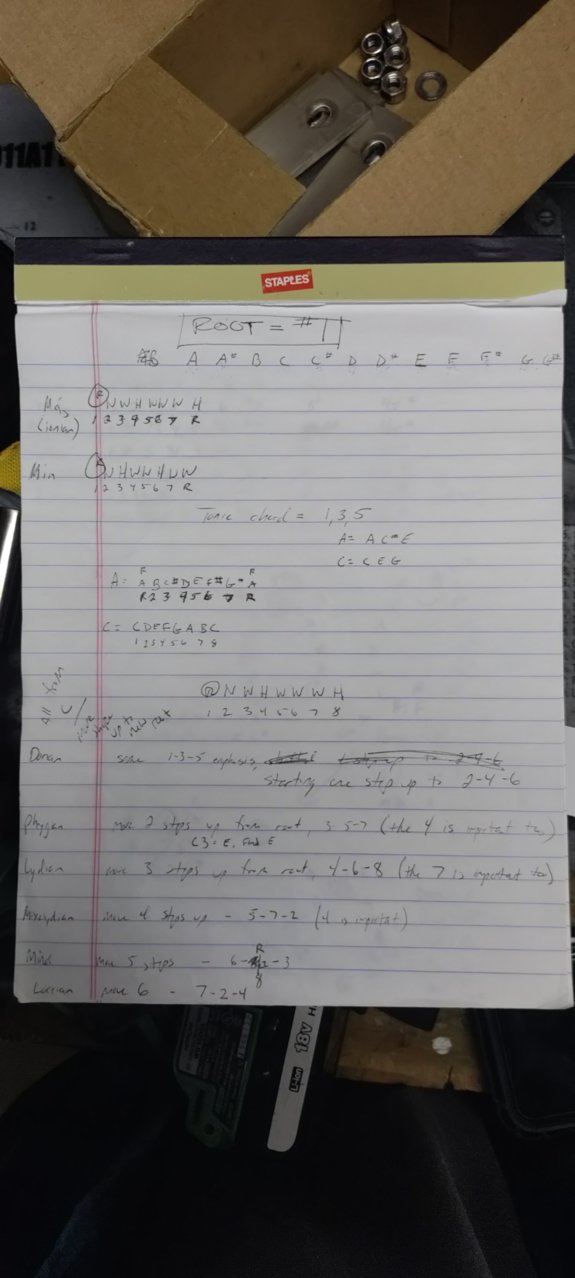 011A11
12
STAPLES
ROOT = #1
A A# B C C# D D# E F F# G G#
Maj (ionian)
R W W H W W W H
1 2 3 4 5 6 7 R
Min
R W H W W H W W
1 2 3 4 5 6 7 R
Tonic chord = 1, 3, 5
A = A C# E
C = C E G
R R
A = A B C# D E F# G# A
R 2 3 4 5 6 7 R
C = C D E F G A B C
1 2 3 4 5 6 7 8
All from C / move shape up to new root
R W W H W W W H
1 2 3 4 5 6 7 8
Dorian same 1-3-5 emphasis,
starting one step up to 2-4-6
Phrygian move 2 steps up from root, 3-5-7 (the 4 is important too)
C3 = E, find E
Lydian move 3 steps up from root, 4-6-8 (the 7 is important too)
Mixolydian move 4 steps up - 5-7-2 (4 is important)
R
Minor move 5 steps - 6- -3
8
Locrian move 6 - 7-2-4
Li-ion
18V
H